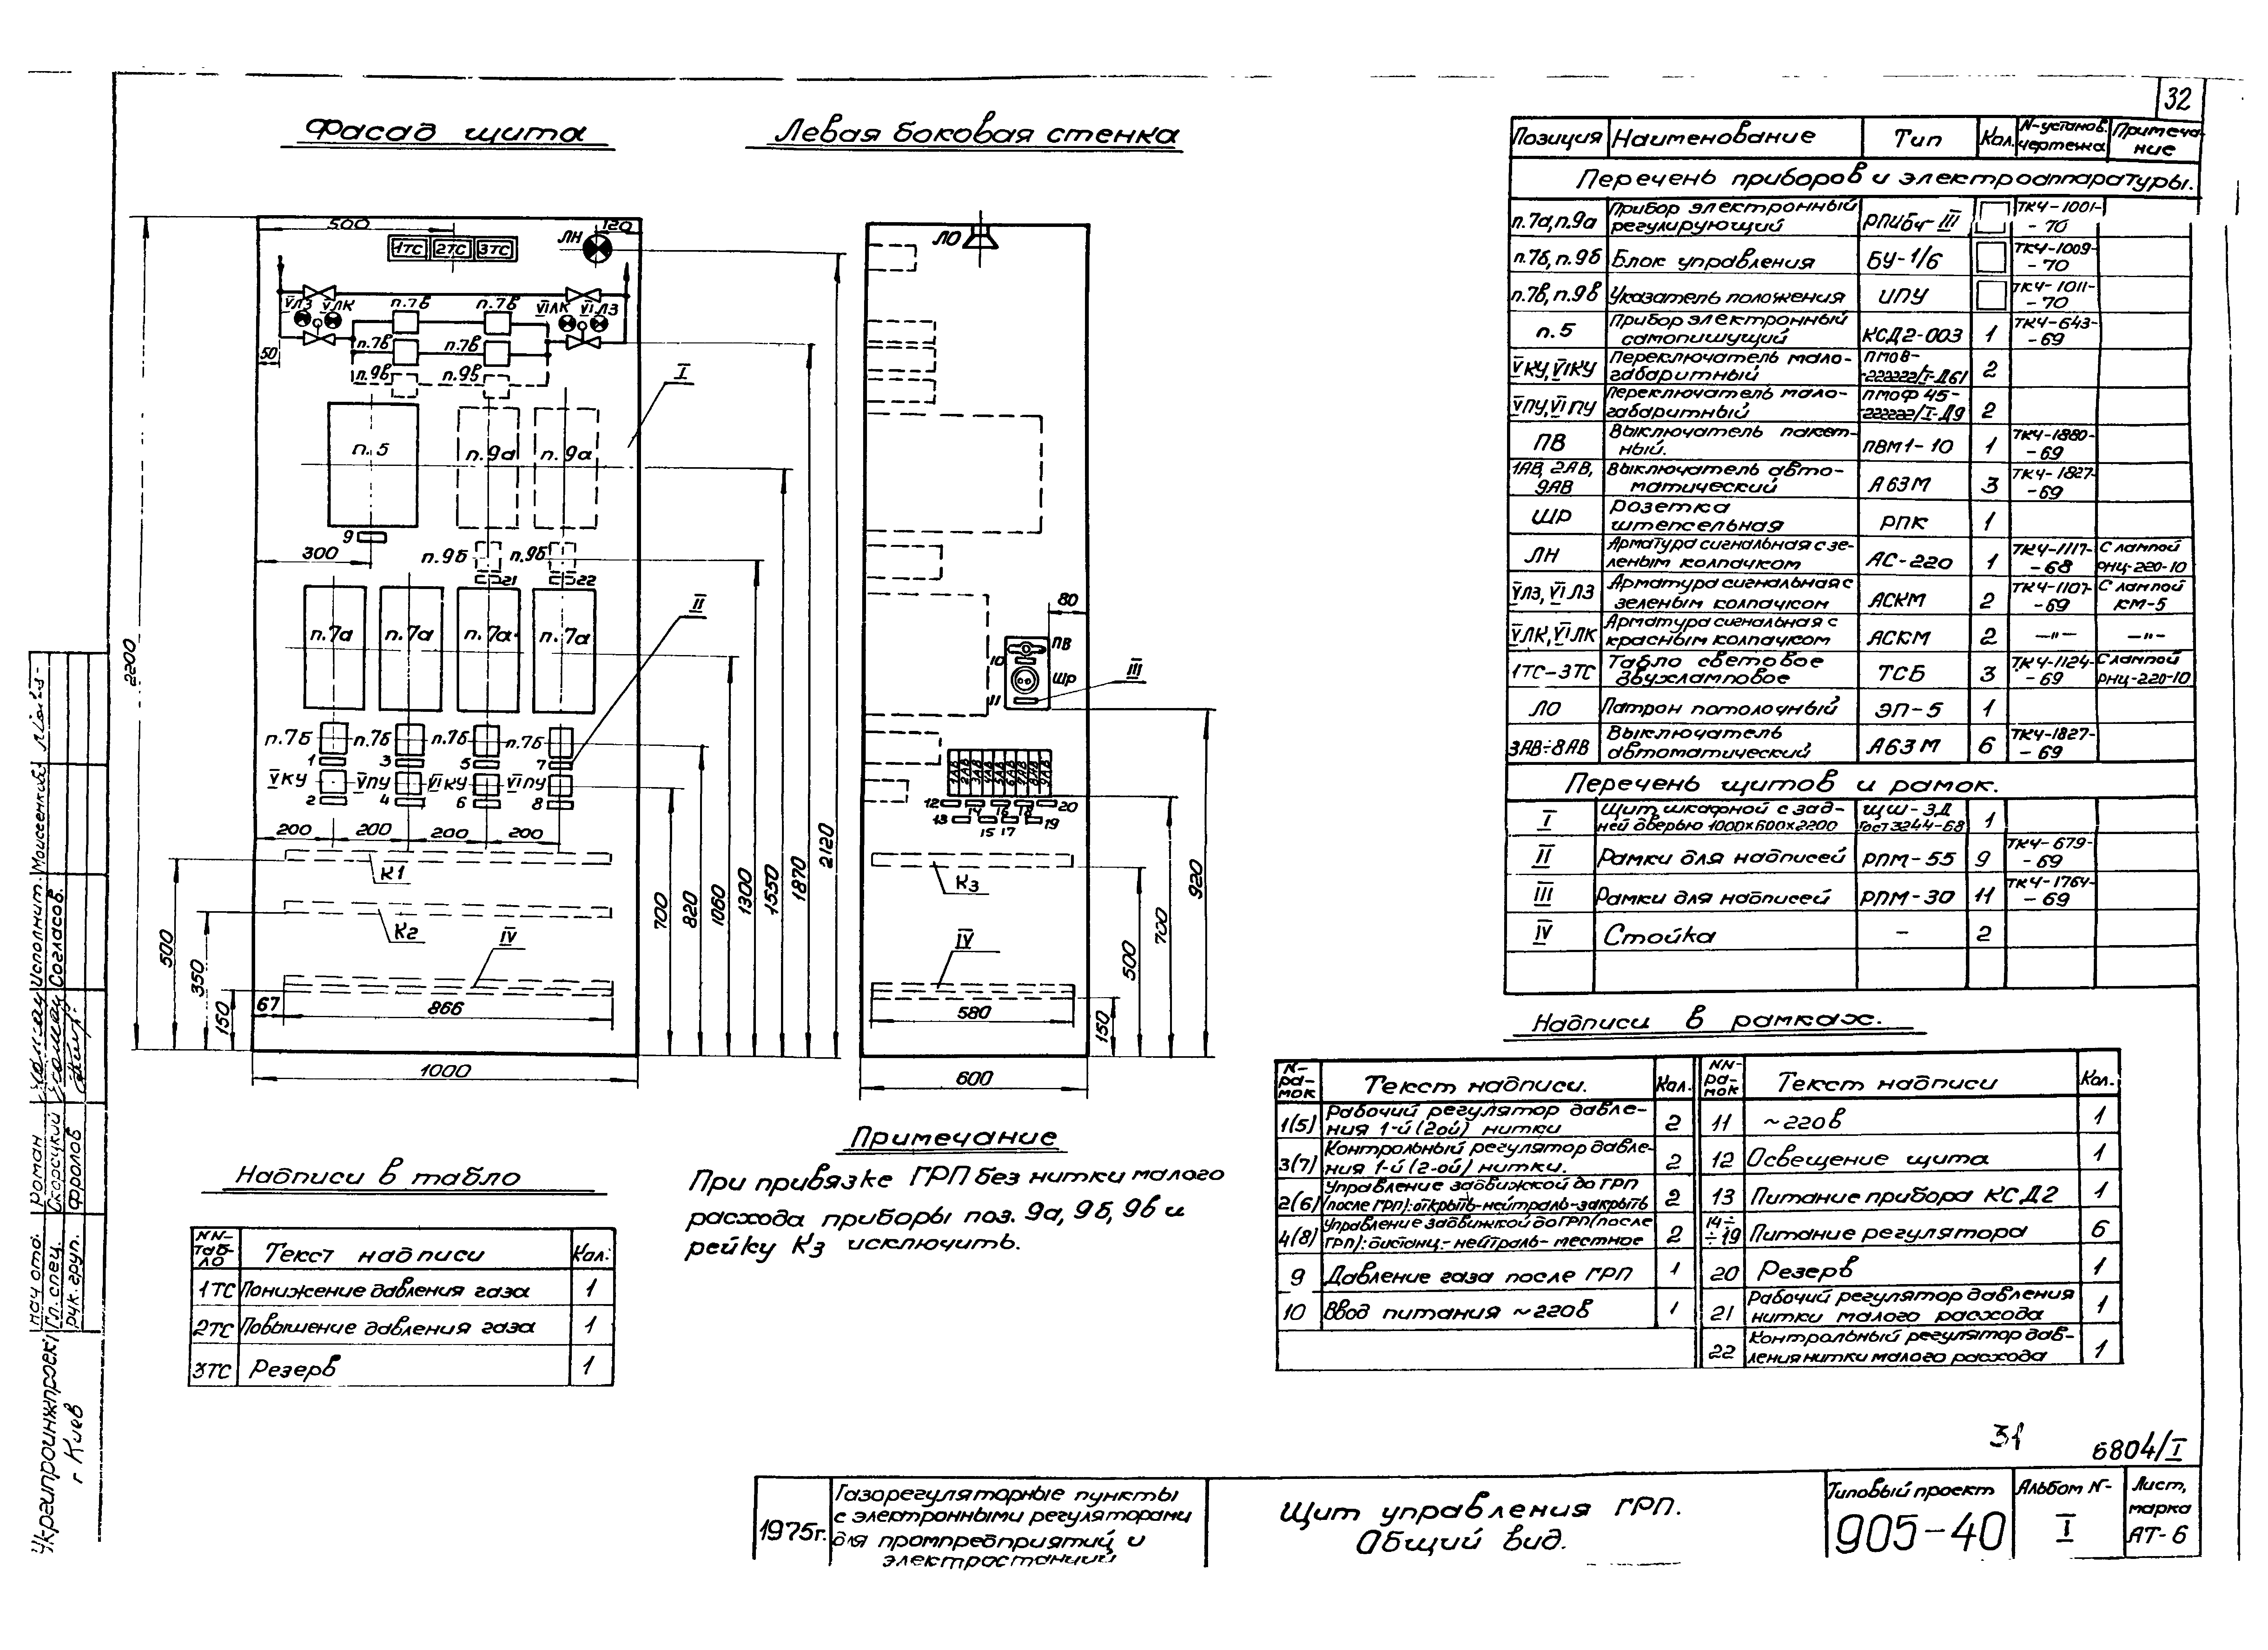 32
Фасад щита
Левая боковая стенка
500
120
1ТС 2ТС 3ТС
ЛН
V ЛЗ V ЛК п.7в п.7в VI ЛК VI ЛЗ
п.7в п.7в
50
п.9в п.9в
I
п.5 п.9а п.9а
9
300
п.9б п.9б
21 22
II
п.7а п.7а п.7а п.7а
п.7б п.7б п.7б п.7б
1 3 5 7
V КУ V ПУ VI КУ VI ПУ
2 4 6 8
200 200 200 200
К1
К2
IV
67 866
1000
2200
500
350
150
700
820
1060
1300
1550
1870
2120
ЛО
80
ПВ
10
ШР
III
11
1АВ 2АВ 3АВ 4АВ 5АВ 6АВ 7АВ 8АВ 9АВ
12 14 16 18 20
13 15 17 19
К3
IV
580
600
150
500
700
920
Позиция Наименование Тип Кол. N-установ. чертежа Примечание
Перечень приборов и электроаппаратуры.
п.7а, п.9а Прибор электронный регулирующий РПИБч-III ТКЧ-1001-70
п.7б, п.9б Блок управления БУ-1/6 ТКЧ-1009-70
п.7в, п.9в Указатель положения ИПУ ТКЧ-1011-70
п.5 Прибор электронный самопишущий КСД2-003 1 ТКЧ-643-69
V КУ, VI КУ Переключатель малогабаритный ПМОВ-222222/I-Д61 2
V ПУ, VI ПУ Переключатель малогабаритный ПМОФ 45-222222/I-Д9 2
ПВ Выключатель пакетный. ПВМ1-10 1 ТКЧ-1880-69
1АВ, 2АВ, 9АВ Выключатель автоматический А63М 3 ТКЧ-1827-69
ШР Розетка штепсельная РПК 1
ЛН Арматура сигнальная с зеленым колпачком АС-220 1 ТКЧ-1117-68 С лампой РНЦ-220-10
V ЛЗ, VI ЛЗ Арматура сигнальная с зеленым колпачком АСКМ 2 ТКЧ-1107-69 С лампой КМ-5
V ЛК, VI ЛК Арматура сигнальная с красным колпачком АСКМ 2 —"— —"—
1ТС-3ТС Табло световое двухламповое ТСБ 3 ТКЧ-1124-69 С лампой РНЦ-220-10
ЛО Патрон потолочный ЭП-5 1
3АВ÷8АВ Выключатель автоматический А63М 6 ТКЧ-1827-69
Перечень щитов и рамок.
I Щит шкафной с задней дверью 1000×600×2200 ЩШ-ЗД Гост 3244-68 1
II Рамки для надписей РПМ-55 9 ТКЧ-679-69
III Рамки для надписей РПМ-30 11 ТКЧ-1764-69
IV Стойка - 2
Надписи в рамках.
N-рамок Текст надписи. Кол. NN-рамок Текст надписи Кол.
1(5) Рабочий регулятор давления 1-й (2ой) нитки 2 11 ~220в 1
3(7) Контрольный регулятор давления 1-й (2-ой) нитки. 2 12 Освещение щита 1
2(6) Управление задвижкой до ГРП (после ГРП): открыть-нейтраль-закрыть 2 13 Питание прибора КСД2 1
4(8) Управление задвижкой до ГРП (после ГРП): дистанц.-нейтраль-местное 2 14÷÷19 Питание регулятора 6
9 Давление газа после ГРП 1 20 Резерв 1
10 Ввод питания ~220в 1 21 Рабочий регулятор давления нитки малого расхода 1
22 Контрольный регулятор давления нитки малого расхода 1
Надписи в табло
NN-табло Текст надписи Кол.
1ТС Понижение давления газа 1
2ТС Повышение давления газа 1
3ТС Резерв 1
Примечание
При привязке ГРП без нитки малого
расхода приборы поз. 9а, 9б, 9в и
рейку К3 исключить.
31
6804/I
1975г.
Газорегуляторные пункты
с электронными регуляторами
для промпредприятий и
электростанций
Щит управления ГРП.
Общий вид.
Типовый проект
905-40
Альбом N-
I
Лист, марка
АТ-6
Укргипроинжпроект
г Киев
Нач отд. Роман Исполнит. Моисеенко
Гл. спец. Скосоцкий Согласов.
Рук. груп. Фролов